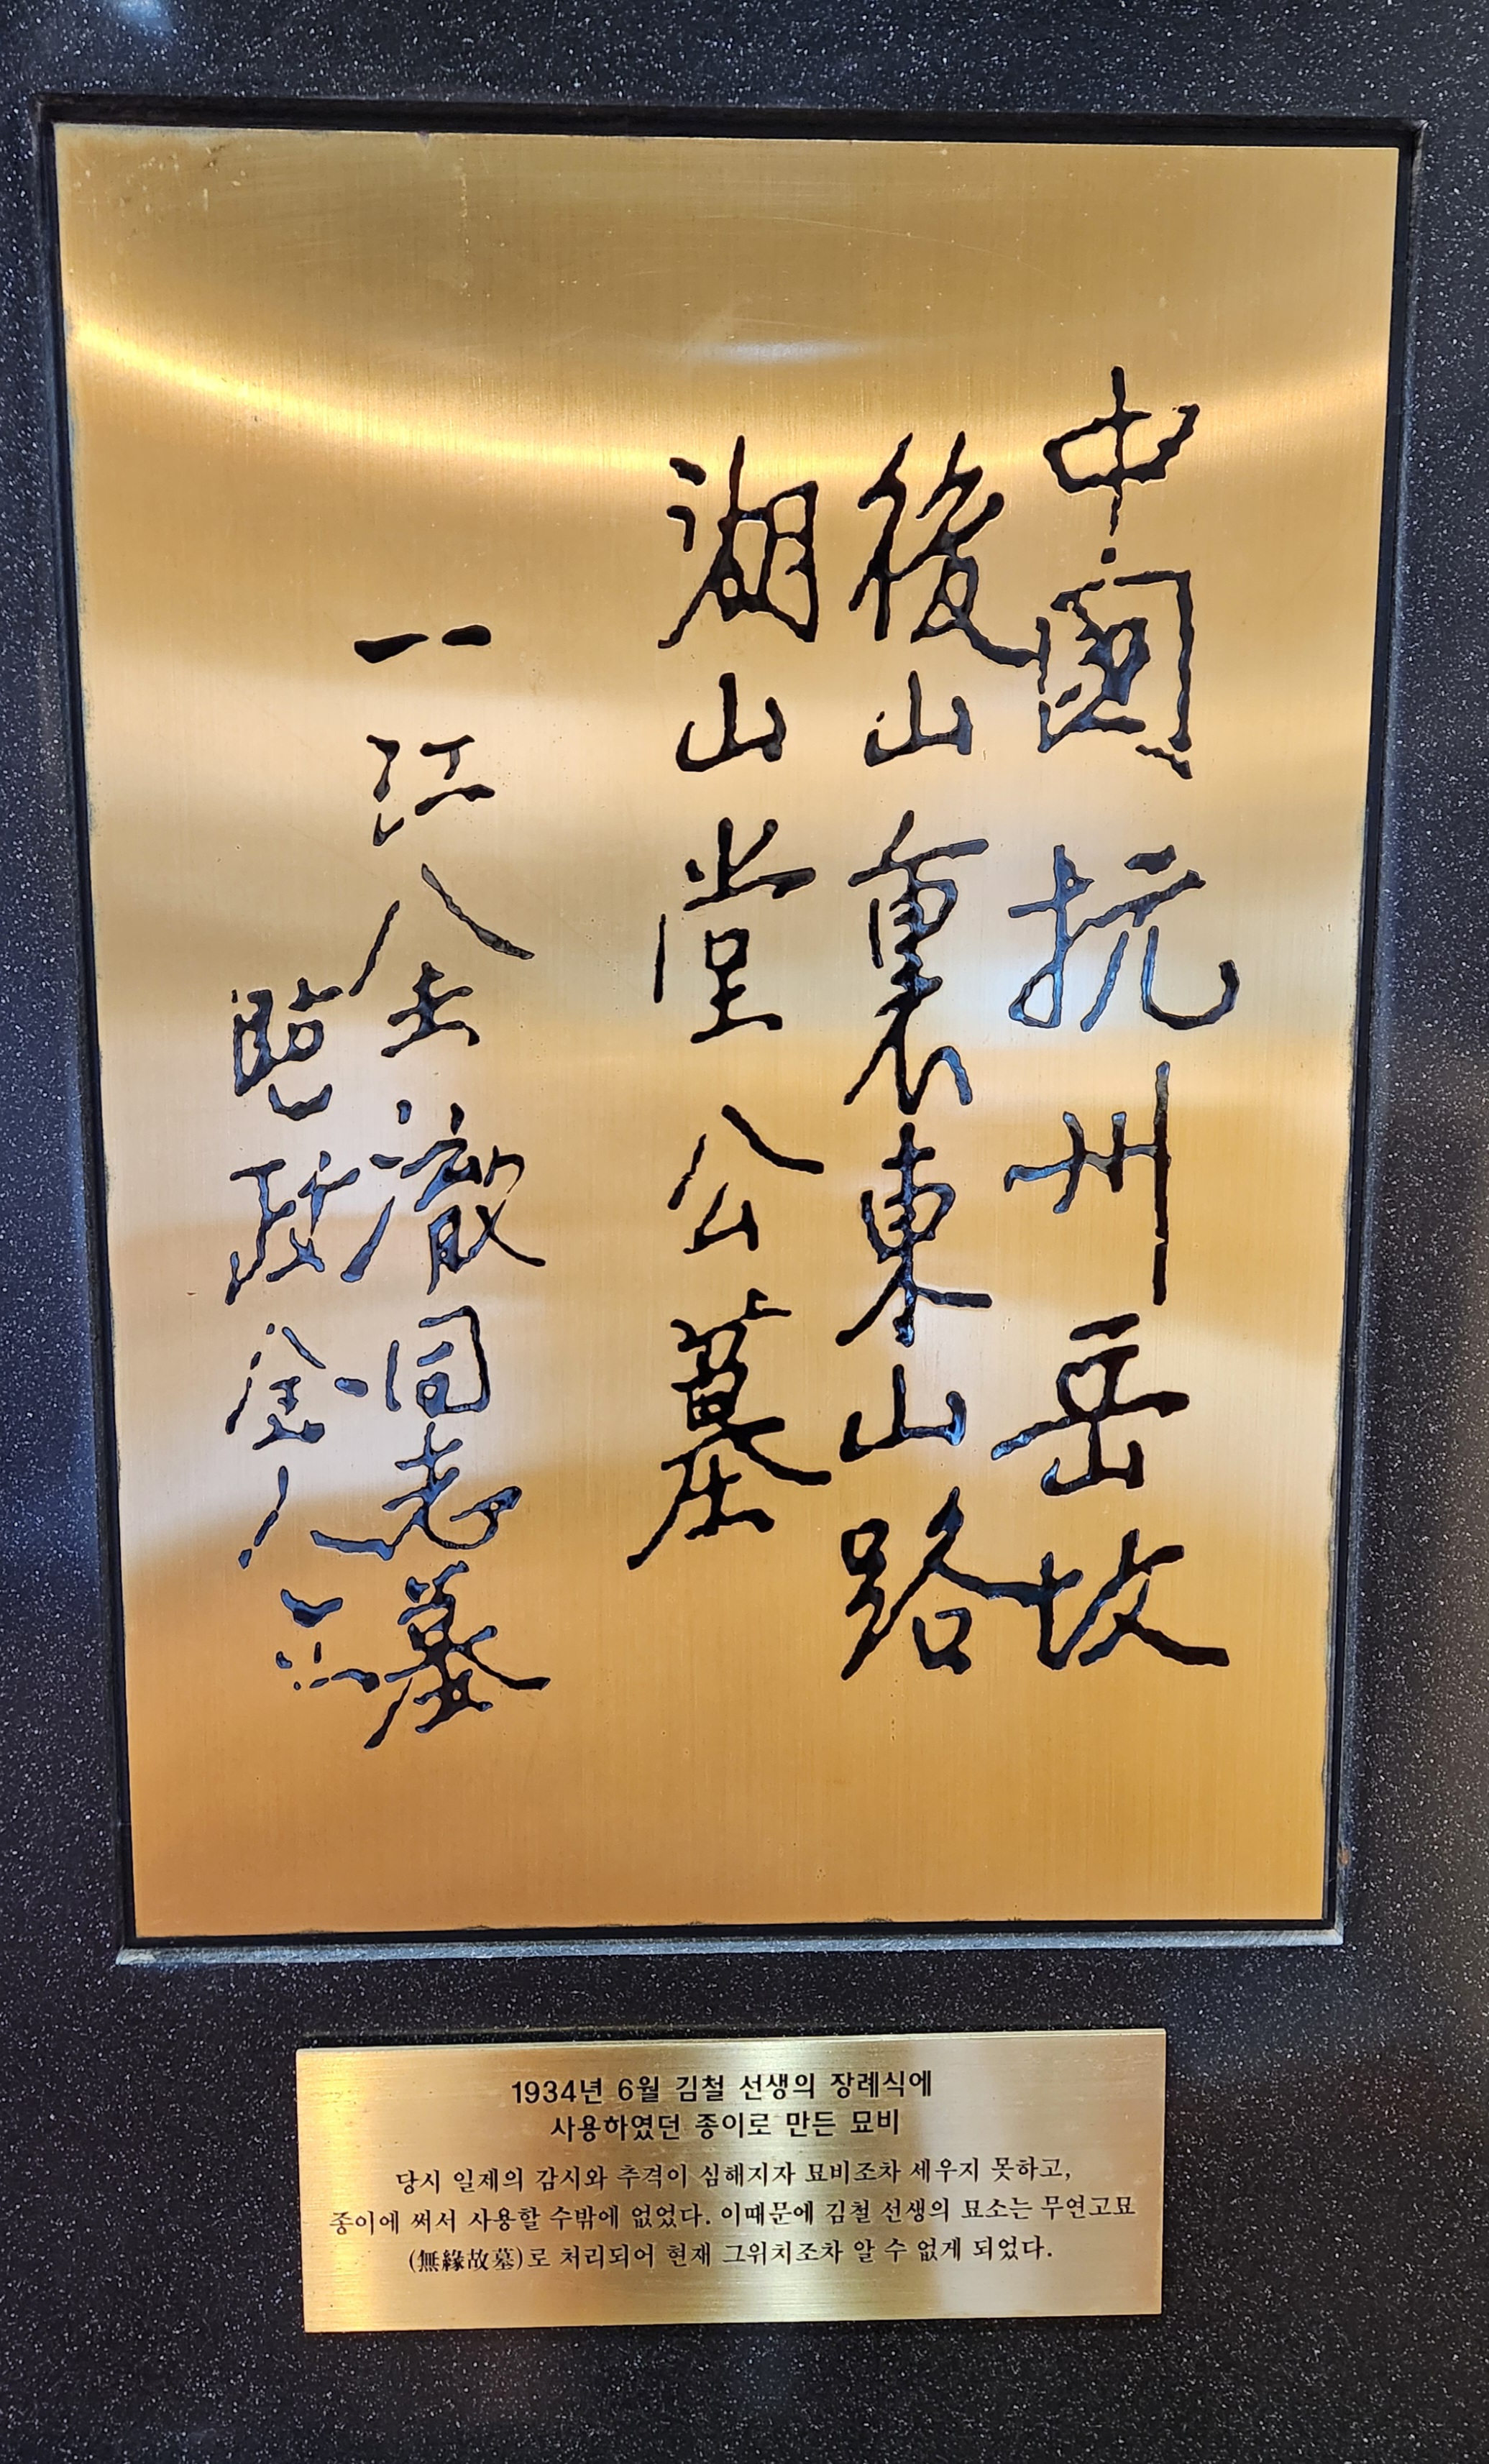 中國抗州岳坟
後山裏東山路
湖山堂公墓
一江金澈同志墓
政金人
1934년 6월 김철 선생의 장례식에
사용하였던 종이로 만든 묘비
당시 일제의 감시와 추격이 심해지자 묘비조차 세우지 못하고,
종이에 써서 사용할 수밖에 없었다. 이때문에 김철 선생의 묘소는 무연고묘
(無緣故墓)로 처리되어 현재 그위치조차 알 수 없게 되었다.